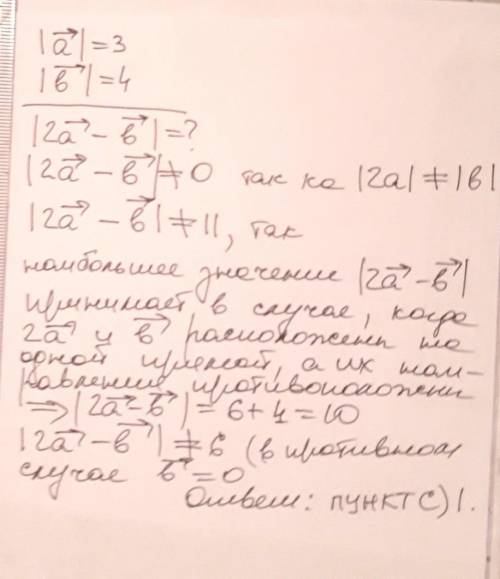 |a⃗| = 3
|в⃗| = 4
|2a⃗ - в⃗| = ?
|2a⃗ - в⃗| ≠ 0 так ка |2a| ≠ |в|
|2a⃗ - в⃗| ≠ 11, так
наибольшее значение |2a⃗ - в⃗|
принимает в случае, когда
2a⃗ и в⃗ расположены на
одной прямой, а их нап-
равления противоположны
⇒ |2a⃗ - в⃗| = 6 + 4 = 10
|2a⃗ - в⃗| ≠ 6 (в противном
случае в⃗ = 0
Ответ: ПУНКТ С) 1.